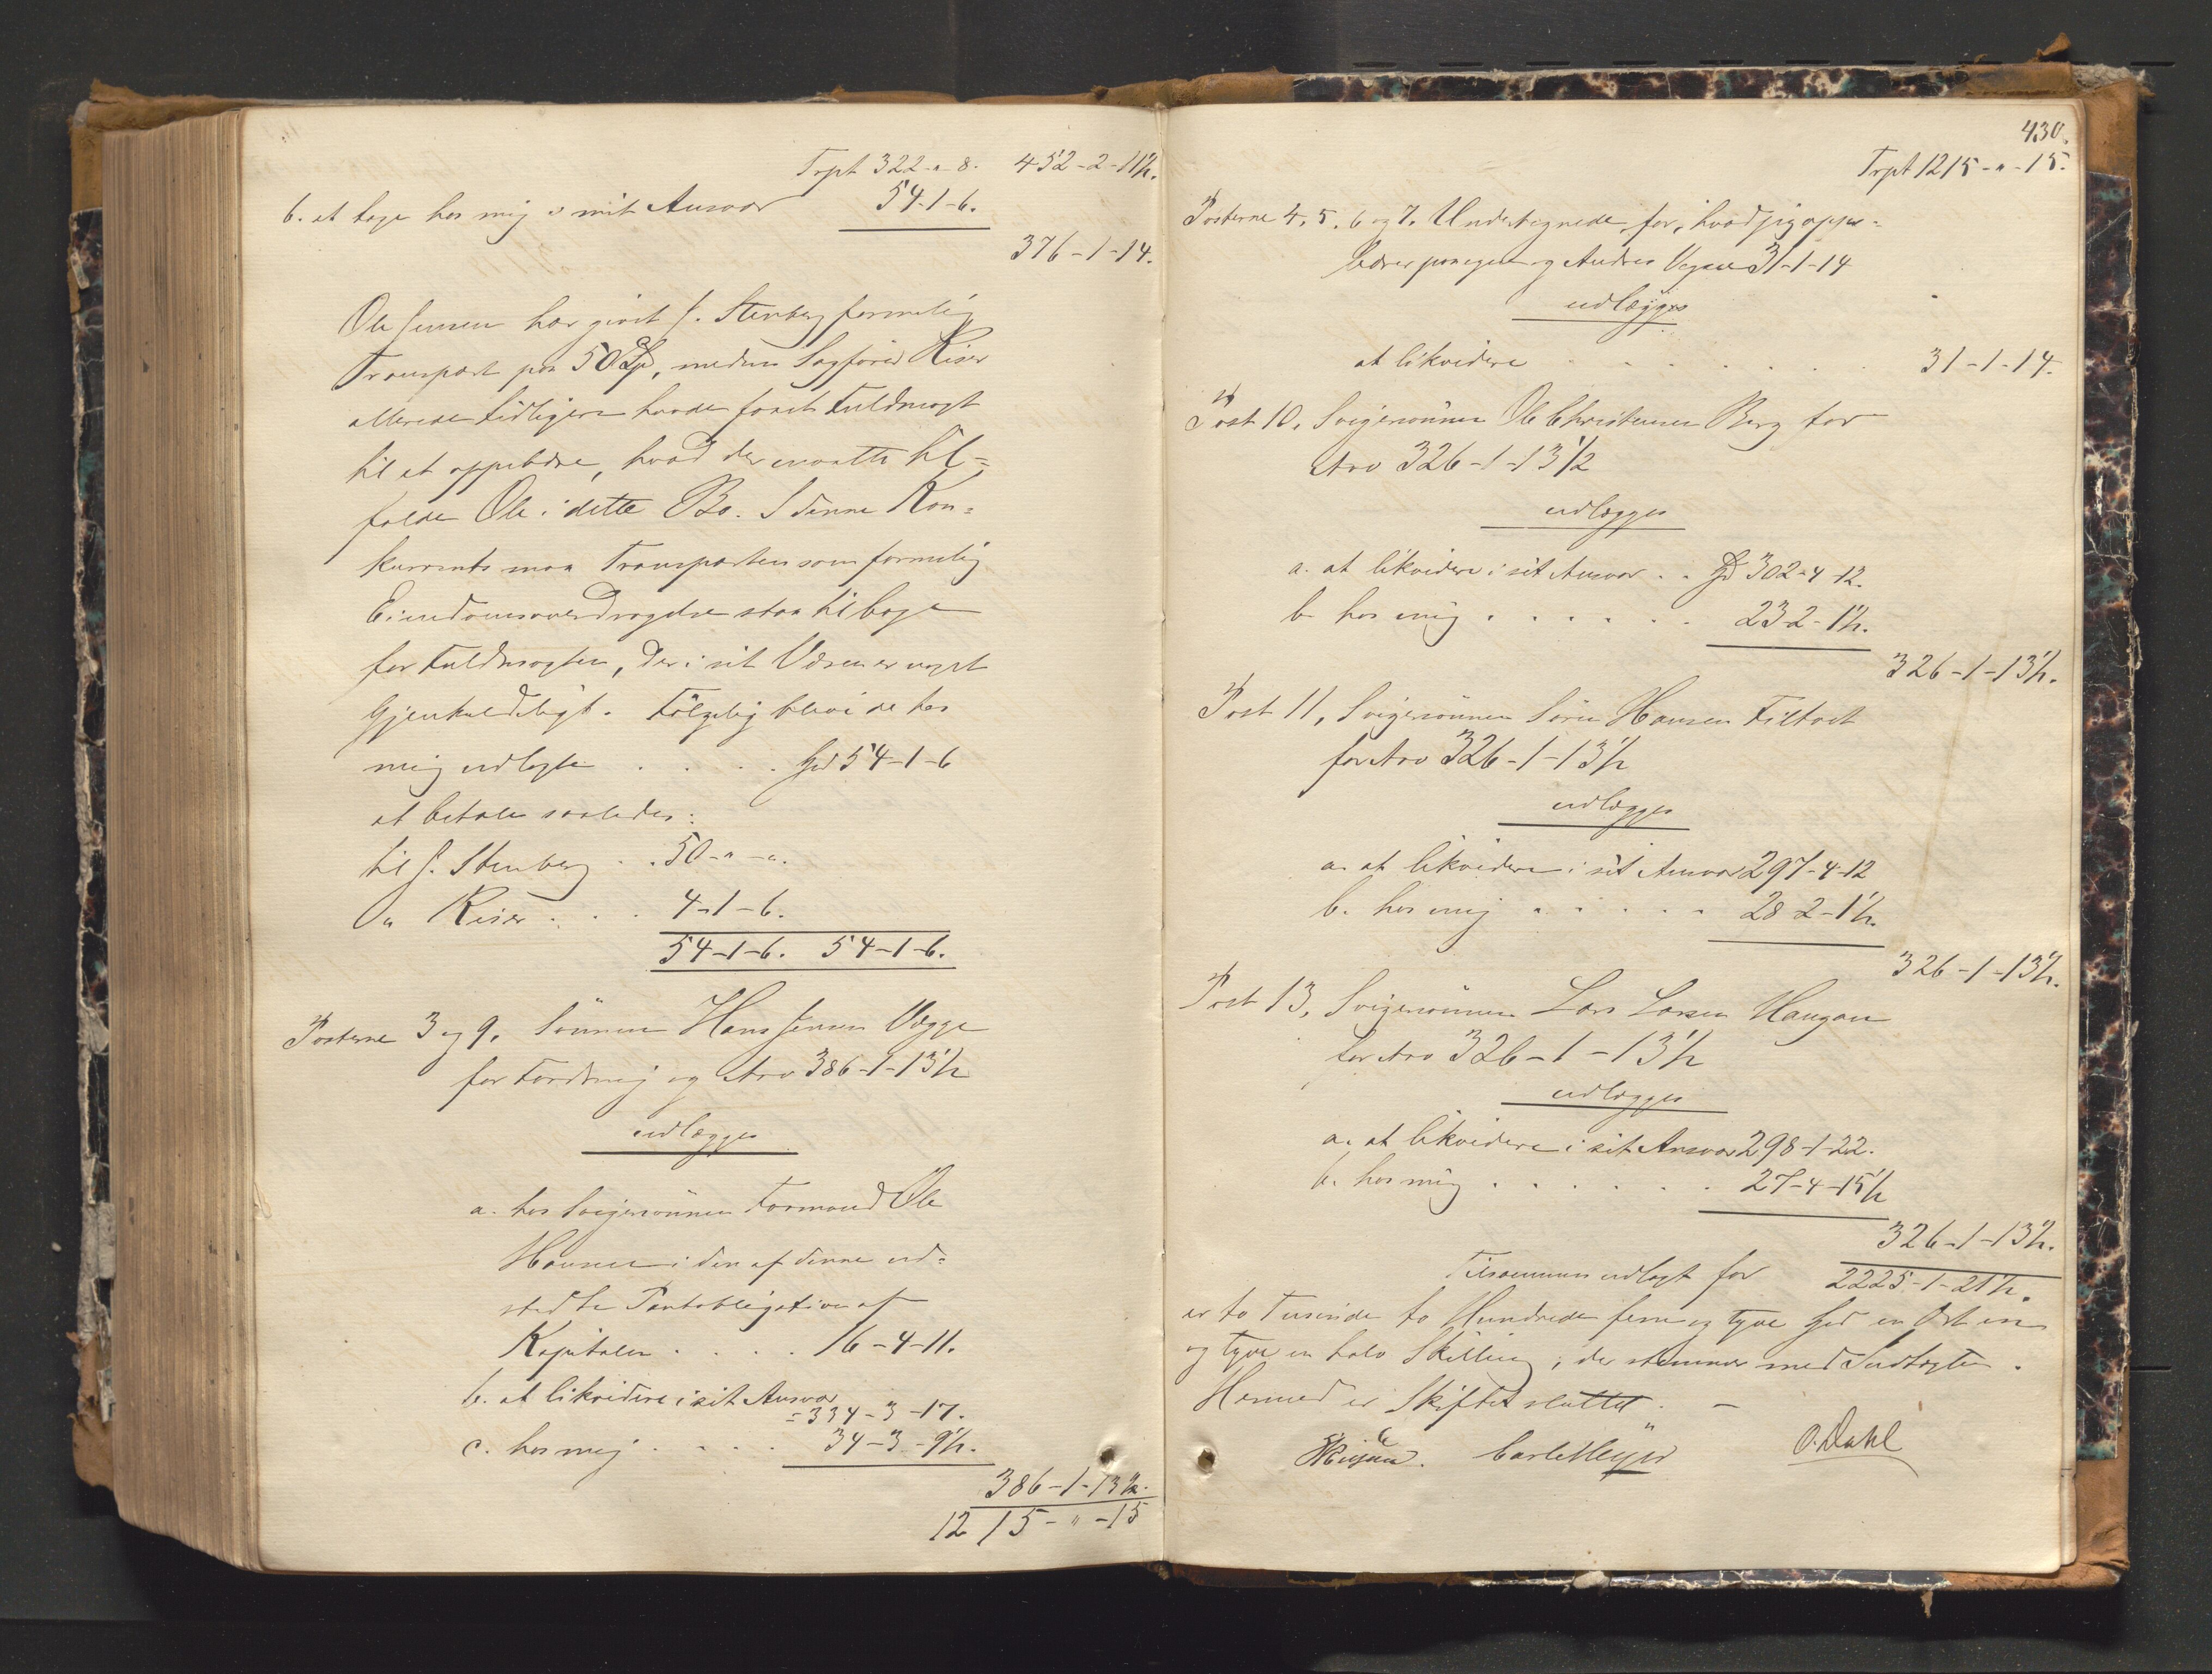 Trpt 322-"-8. 452-2-11½.
b. at tage hos mig i mit Ansvar 54-1-6.
376-1-14.
Ole Jensen har givet J. Stenberg formelig
Transport paa 50 Spd, medens Sagfører Riser
allerede tidligere havde faaet Fuldmagt
til at oppebære, hvad der maatte til=
falde Ole i dette Bo. I denne Kon=
kurrents maa Transporten som formelig
Eiendomsoverdragelse staa tilbage
for Fuldmagten, der i sit Væsen er
Gjenkaldeligt. Følgelig blive de hos
mig udlagte . . . . Spd 54-1-6
at betale saaledes:
til J. Stenberg . . 50-"-".
" Riser . . . 4-1-6.
54-1-6. 54-1-6.
Posterne 3 og 9, Sønnen Hans Jensen Vegge
for Fordring og Arv 386-1-13½
udlægges
a. hos Svigersønnen Formand Ole
Hansen i den af denne ud=
stedte Pantobligation af
Kapitalen . . . . 16-4-11.
b. at likvidere i sit Ansvar
= 334-3-17.
c. hos mig . . . . 34-3-9½.
386-1-13½.
1215-"-15
430.
Trpt 1215-"-15.
Posterne 4, 5, 6 og 7. Undertegnede, for, hvad jeg oppe=
bærer paa egne og Andres Vegne 31-1-14
udlægges
at likvidere . . . . . . . 31-1-14.
Post 10, Svigersønnen Ole Christensen Berg for
Arv 326-1-13½
udlægges
a. at likvidere i sit Ansvar . . Spd 302-4-12.
b. hos mig . . . . . . 23-2-1½.
326-1-13½.
Post 11, Svigersønnen Søren Hansen Filtvet
for Arv 326-1-13½
udlægges
a. at likvidere i sit Ansvar 297-4-12
b. hos mig . . . . . 28-2-1½.
326-1-13½.
Post 13, Svigersønnen Lars Larsen Haugan
for Arv 326-1-13½
udlægges
a. at likvidere i sit Ansvar 298-1-22.
b. hos mig . . . . . . 27-4-15½
326-1-13½.
Tilsammen udlagt for 2225-1-21½.
er to Tusinde to Hundrede fem og tyve Spd en Ort en
og tyve en halv Skilling, der stemmer med Indtægten.
Hermed er Skiftet sluttet. —
Carl Meyer O. Dahl